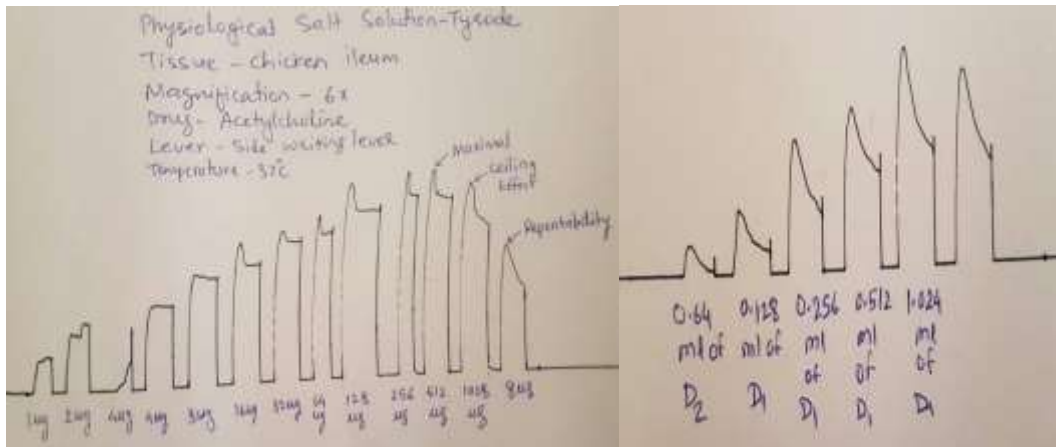 Physiological Salt Solution-Tyrode
Tissue - Chicken ileum
Magnification - 6x
Drug- Acetylcholine
Lever - Side writing lever
Temperature - 37°C
Maximal
Ceiling
Effect
Repeatability
1ug 2ug 4ug 4ug 8ug 16ug 32ug 64 ug 128 ug 256 ug 512 ug 1028 ug 8ug
0.64 0.128 0.256 0.512 1.024
ml of ml of ml ml ml
of of of
D2 D1 D1 D1 D1